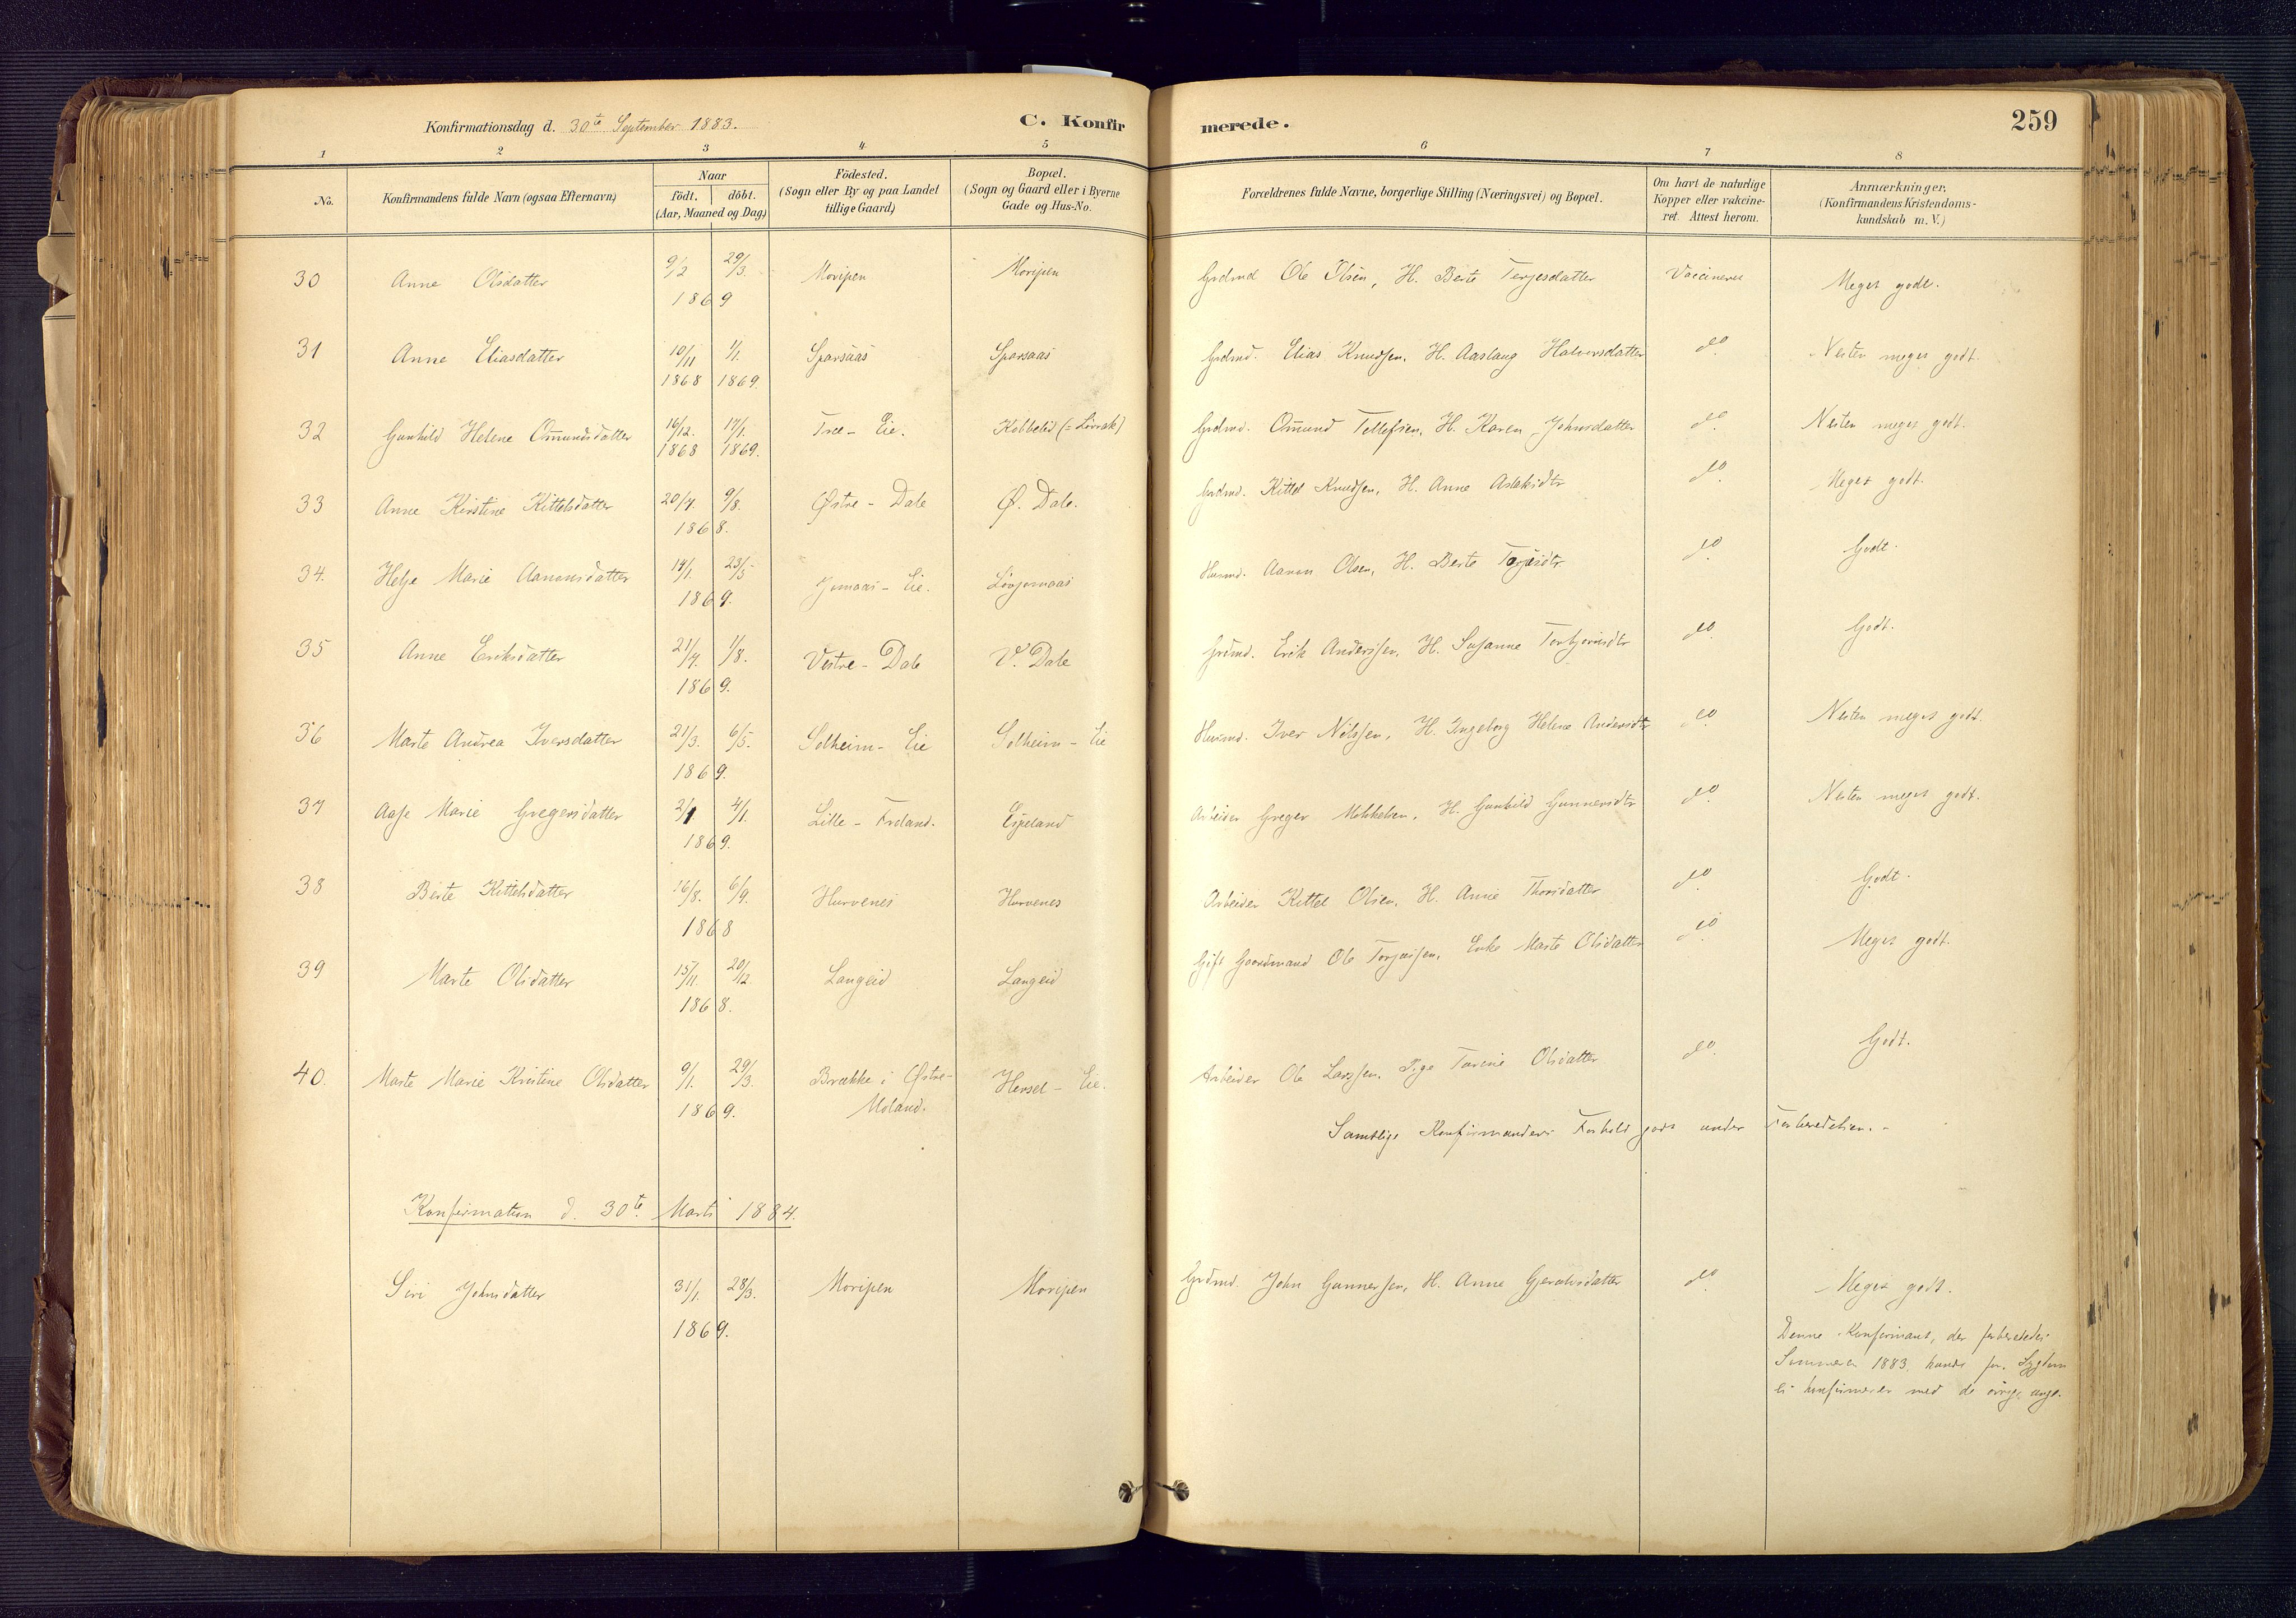 Konfirmationsdag d. 30te September 1883.
C. Konfirmerede.
259
1 2 3 4 5 6 7 8
No.
Konfirmandens fulde Navn (ogsaa Efternavn)
Naar
födt. döbt.
(Aar, Maaned og Dag)
Födested.
(Sogn eller By og paa Landet
tillige Gaard)
Bopæl.
(Sogn og Gaard eller i Byerne
Gade og Hus-No.
Forældrenes fulde Navne, borgerlige Stilling (Næringsvei) og Bopæl.
Om havt de naturlige
Kopper eller vakcine-
ret. Attest herom.
Anmærkninger.
(Konfirmandens Kristendoms-
kundskab m. V.)
30 Anne Olsdatter 9/2 29/3. Moripen Moripen Grdmd Ole Olsen, H. Berte Terjesdatter Vaccineret Meget godt.
1869
31 Anne Eliasdatter 10/11 1/1. Sparsaas Sparsaas Grdmd. Elias Knudsen, H. Aaslaug Halvorsdatter do. Nesten meget godt.
1868 1869.
32 Gunhild Helene Omundsdatter 16/12. 17/1. Tree-Eie. Kobbelid (=Lövrak) Grdmd. Omund Tellefsen, H. Karen Johnsdatter do. Nesten meget godt.
1868 1869.
33 Anne Kirstine Kittelsdatter 20/7. 9/8. Østre-Dale Ø. Dale. Grdmd. Kittel Knudsen, H. Anne Aslaksdtr do. Meget godt.
1868.
34. Helje Marie Aanonsdatter 14/1. 23/5 Jomaas-Eie. Lövjomaas Husmd. Aanon Olsen, H. Berte Torjesdtr do. Godt.
1869.
35 Anne Eriksdatter 21/7. 1/8. Vestre-Dale V. Dale Grdmd. Erik Anderssen, H. Susanne Torbjørnsdtr do. Godt.
1869.
36 Marte Andrea Iversdatter 21/3. 6/5. Solheim-Eie Solheim-Eie Husmd. Iver Nilssen, H. Ingeborg Helene Andersdtr do. Nesten meget godt.
1869.
37 Aase Marie Gregersdatter 2/1 4/1. Lille-Froland. Espeland Arbeider Greger Mikkelsen, H. Gunhild Gunnersdtr do. Nesten meget godt.
1869.
38 Berte Kittelsdatter 16/8. 6/9. Hurvenes Hurvenes Arbeider Kittel Olsen, H. Anne Thorsdatter do. Godt.
1868
39 Marte Olsdatter 15/11. 20/12 Langeid Langeid Gift Gaardmand Ole Torjussen, Enke Marte Olsdatter do. Meget godt.
1868.
40. Marte Marie Kristine Olsdatter 9/1. 29/3. Brække i Østre- Hersel-Eie. Arbeider Ole Larssen, Pige Torine Olsdatter do. Godt.
1869. Moland.
Samtlige Konfirmanders Forhold godt under Forberedelsen.
Konfirmation d. 30te Marts 1884.
Siri Johnsdatter 31/1. 28/3. Moripen Moripen Grdmd. John Gunnersen, H. Anne Gjeruldsdatter do. Meget godt.
1869.
Denne Konfirmant, der forberededes
Sommeren 1883, kunde for Sygdom
ei konfirmeres med de øvrige unge.